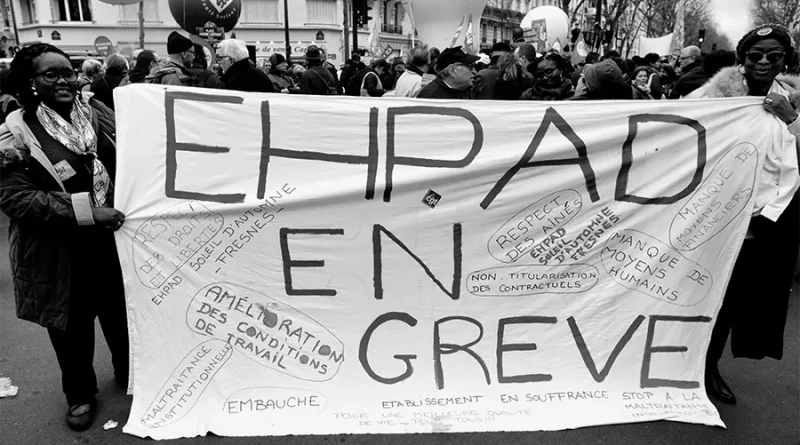 EHPAD
EN
GRÈVE
RESPECT
DES DROITS
ET LIBERTÉS
EHPAD SOLEIL D'AUTOMNE
- FRESNES -
AMÉLIORATION
DES CONDITIONS
DE TRAVAIL
MALTRAITANCE
INSTITUTIONNELLE
EMBAUCHE
RESPECT,
DES AINÉS
EHPAD
SOLEIL D'AUTOMNE
FRESNES
NON. TITULARISATION
DES CONTRACTUELS
MANQUE DE
MOYENS
HUMAINS
MANQUE DE
MOYENS
FINANCIERS
ETABLISSEMENT EN SOUFFRANCE STOP A LA
MALTRAITANCE
POUR UNE MEILLEURE QUALITÉ
DE VIE POUR TOUS!!!